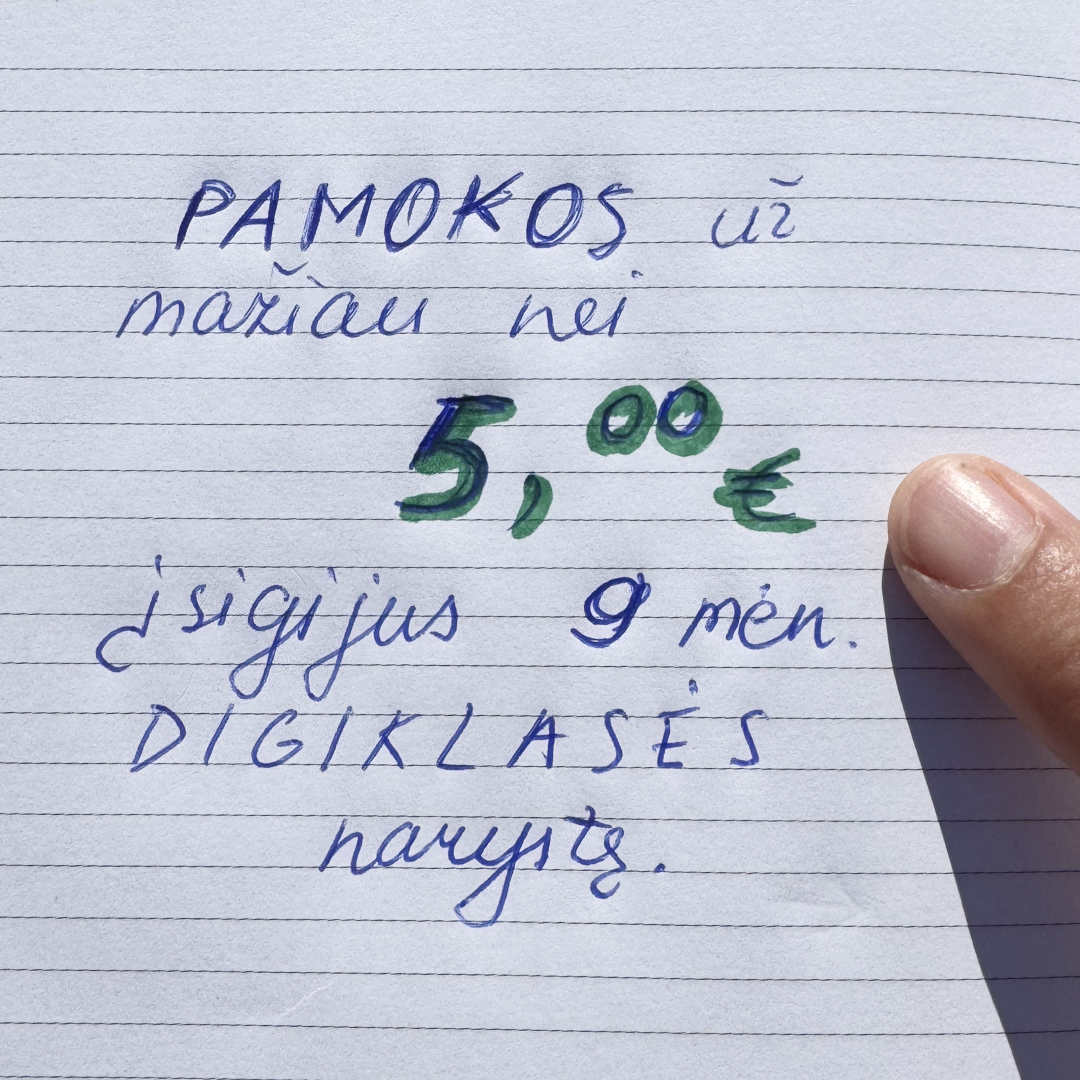 PAMOKOS už
mažiau nei
5,00 €
įsigijus 9 mėn.
DIGIKLASĖS
narystę.